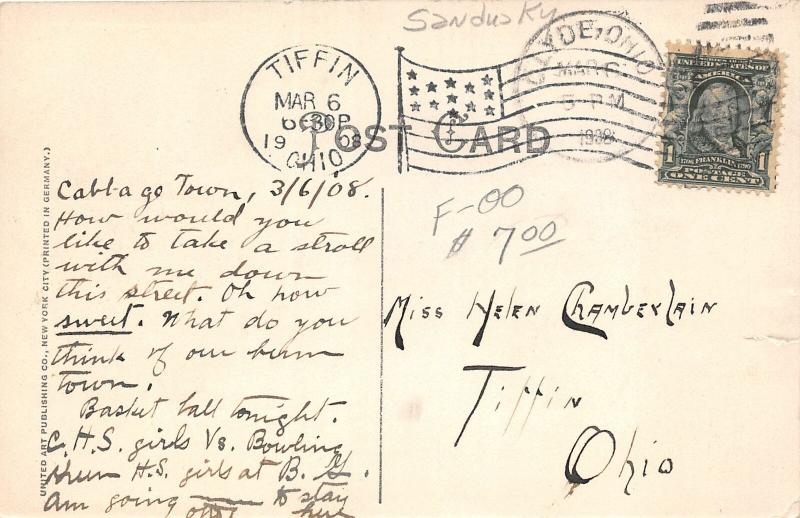 Sandusky
TIFFIN
MAR 6
6-30P
1908
OHIO
CLYDE, OHIO
MAR 6
5-PM
1908
POST CARD
SERIES 1902
UNITED STATES OF AMERICA
1706 FRANKLIN 1790
POSTAGE
1 ONE CENT 1
UNITED ART PUBLISHING CO., NEW YORK CITY (PRINTED IN GERMANY.)
Cabbage Town, 3/6/08.
How would you
like to take a stroll
with me down
this street. Oh how
sweet. What do you
think of our bum
town.
Basket ball tonight.
C.H.S. girls Vs. Bowling
Green H.S. girls at B. G.
Am going to stay
here
F-00
$7.00
Miss Helen Chamberlain
Tiffin
Ohio